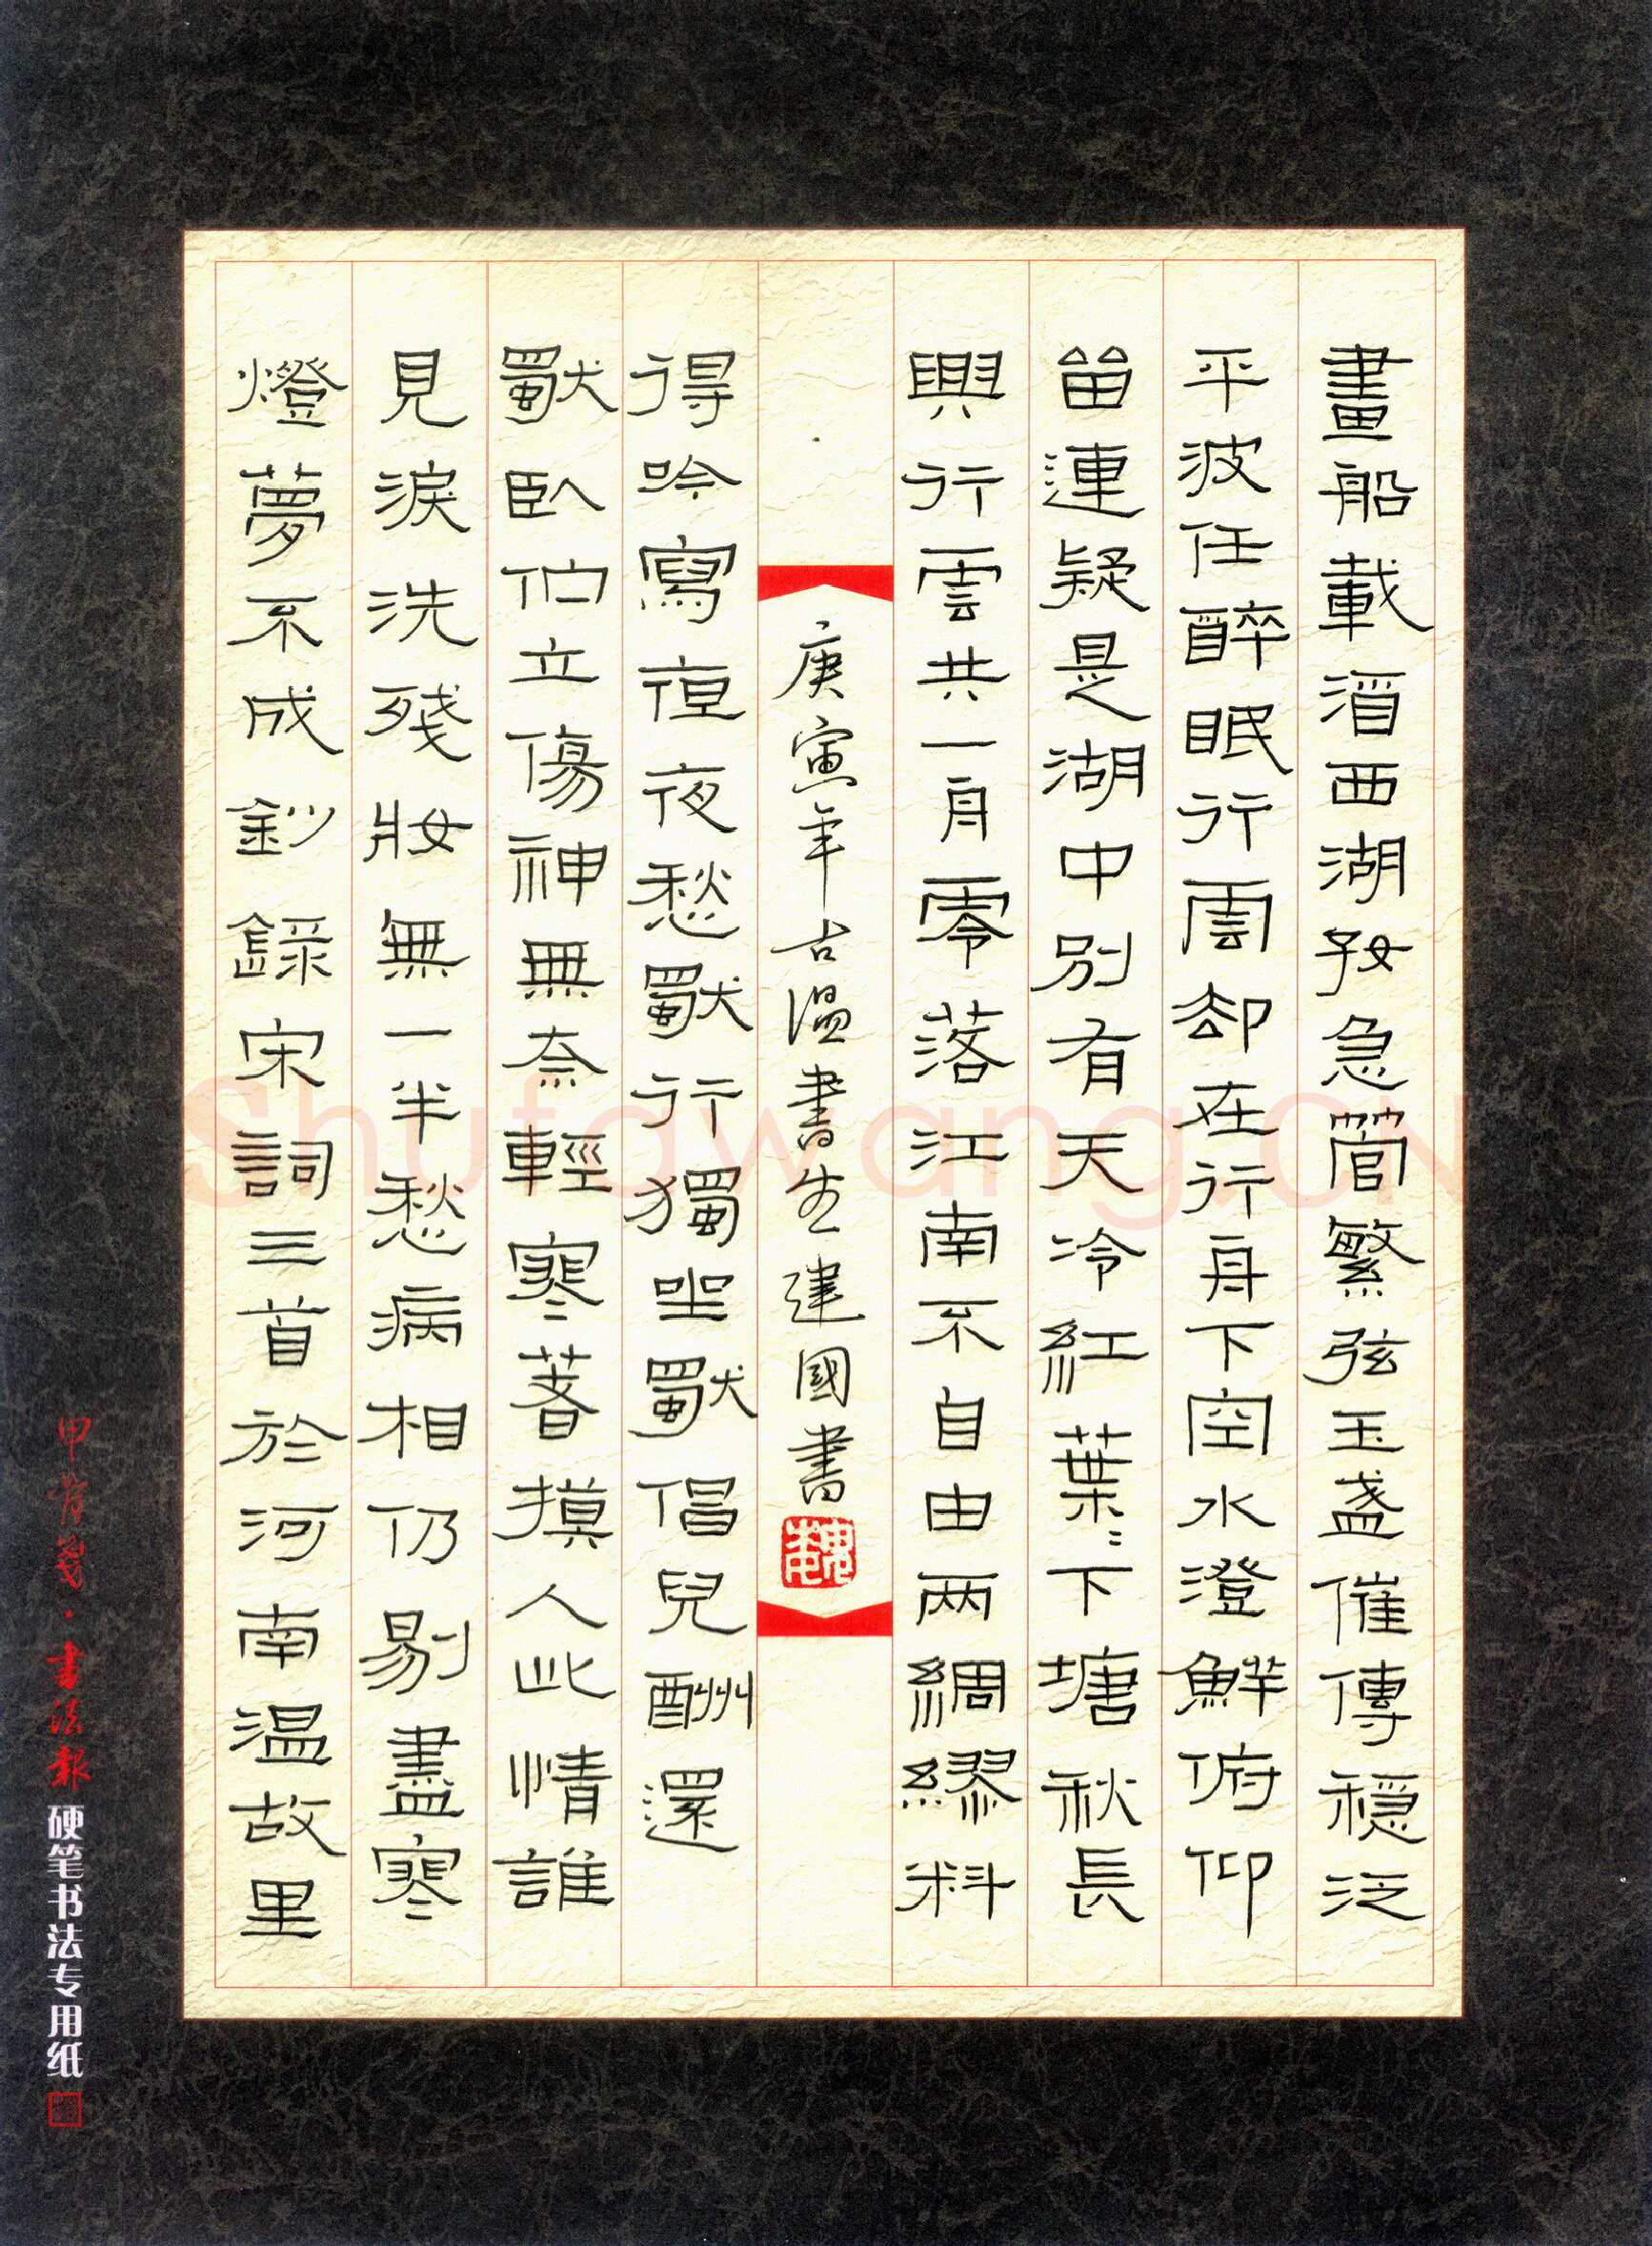 畫船載酒西湖好急管繁弦玉盞催傳穩泛
平波任醉眠行雲却在行舟下空水澄鮮俯仰
留連疑是湖中別有天冷紅葉〻下塘秋長
與行雲共一舟零落江南不自由两綢繆料
庚寅年古溫書生建國書
得吟寫亱夜愁獨行獨坐獨倡兒酬還
獨臥佇立傷神無奈輕寒著摸人此情誰
見淚洗殘妝無一半愁病相仍剔盡寒
燈夢不成鈔錄宋詞三首於河南温故里
甲骨箋·書法報 硬笔书法专用纸
Shufawang.CN